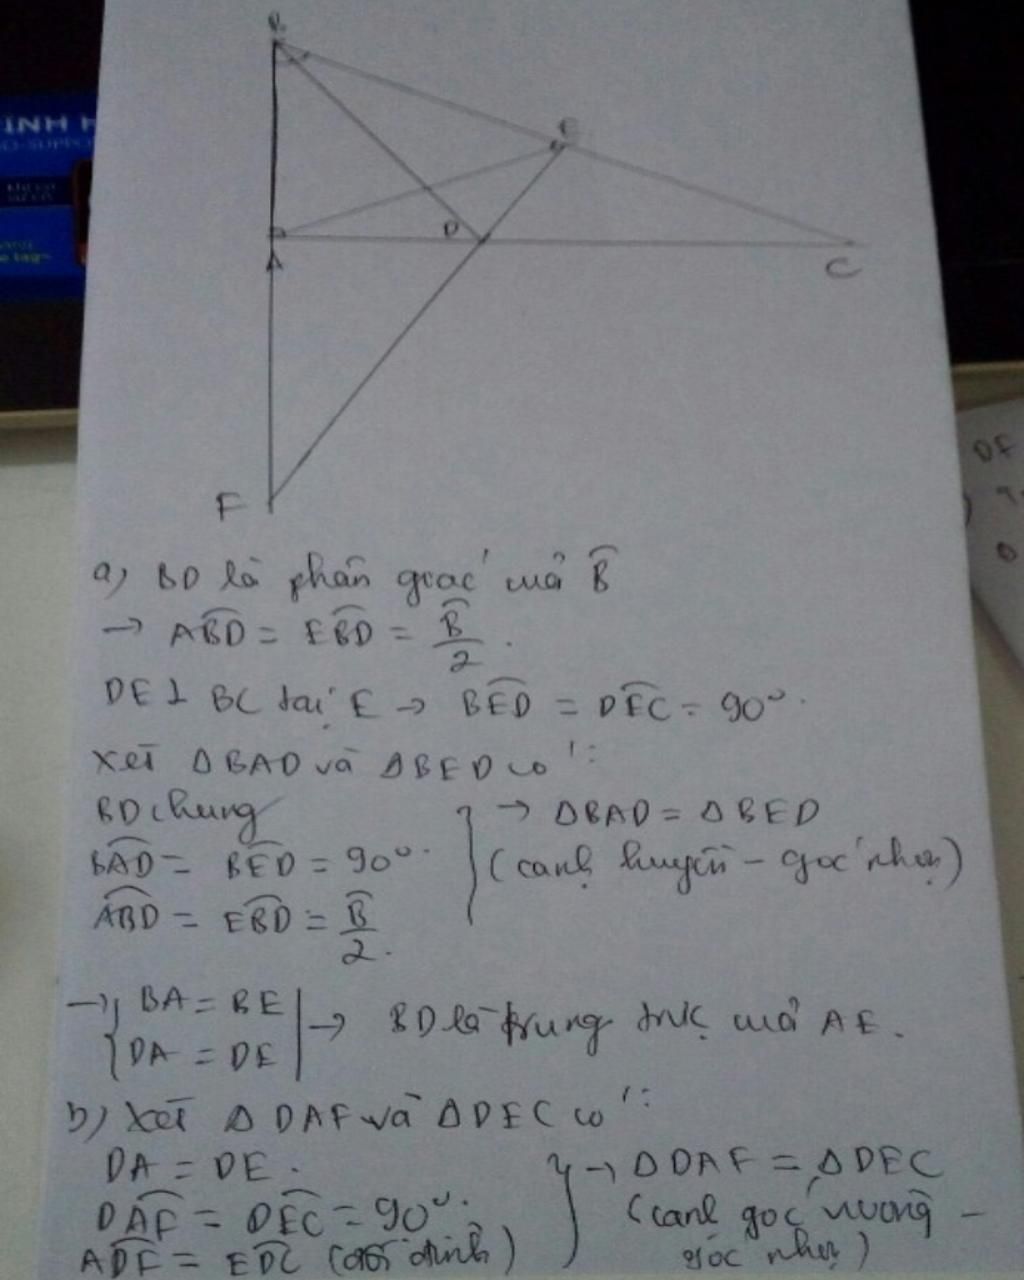 B
E
D
A
C
F
a) BD là phân giác của B̂
→ ABD̂ = EBD̂ = B̂/2.
DE ⊥ BC tại E → BED̂ = DEĈ = 90°.
Xét ΔBAD và ΔBED có:
BD chung
BAD̂ = BED̂ = 90°.
ABD̂ = EBD̂ = B̂/2.
} → ΔBAD = ΔBED
(cạnh huyền – góc nhọn)
→ { BA = BE
DA = DE | → BD là trung trực của AE.
b) Xét ΔDAF và ΔDEC có:
DA = DE.
DAF̂ = DEĈ = 90°.
ADF̂ = EDĈ (đối đỉnh)
} → ΔDAF = ΔDEC
(cạnh góc vuông –
góc nhọn)
DF